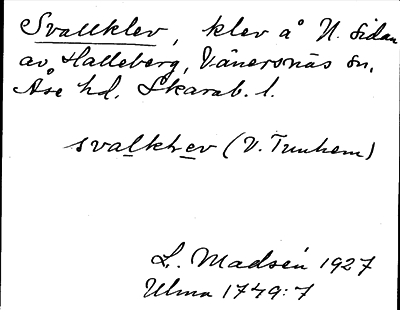 Svallklev, klev å N. sidan
av Halleberg, Vänersnäs sn,
Åse hd, Skarab. l.
svalklev (V. Tunhem)
L. Madsén 1927
Ulma 1749:7